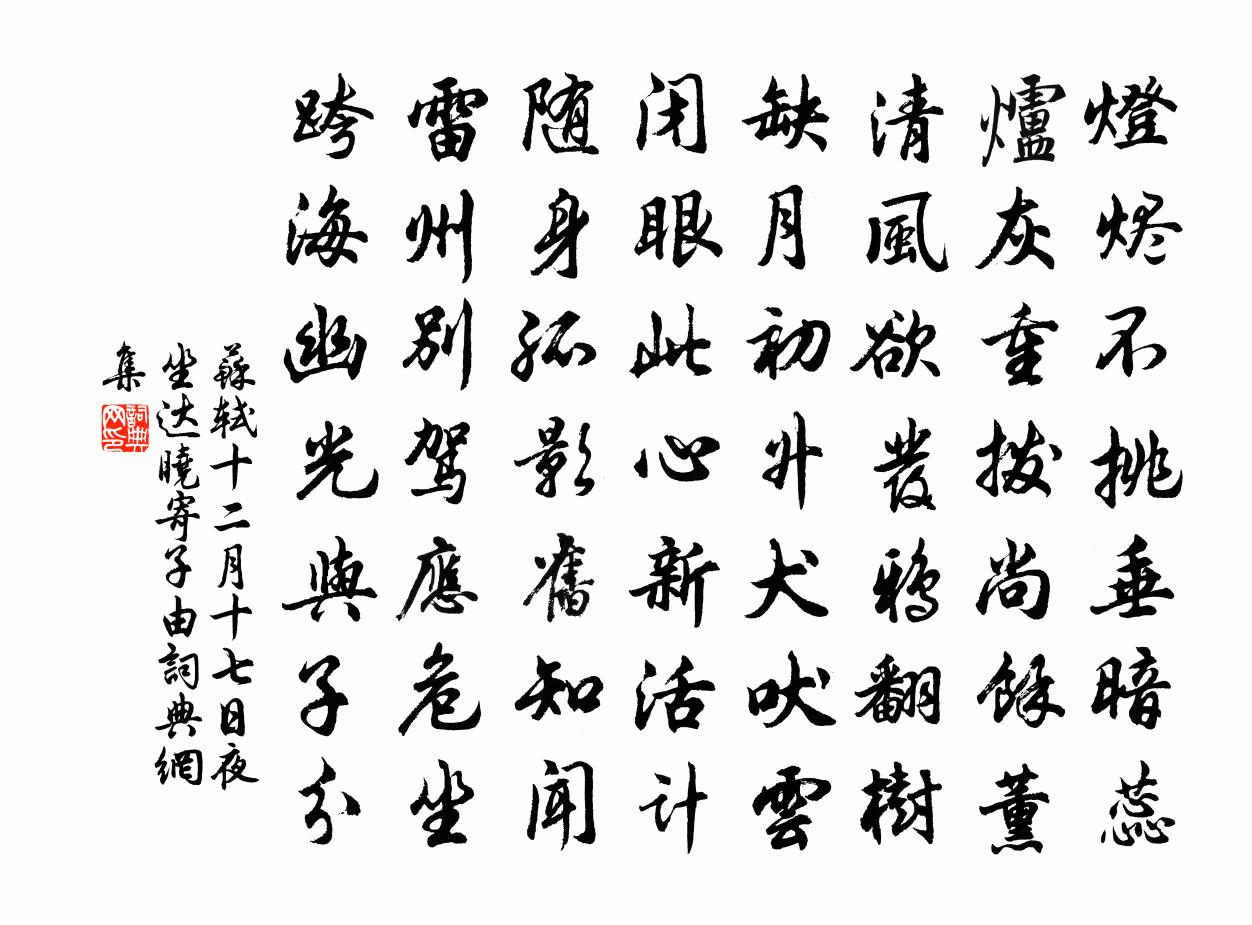 燈烬不挑垂暗蕊
爐灰重撥尚餘薰
清風欲發鴉翻樹
缺月初升犬吠雲
闭眼此心新活计
随身孤影舊知闻
雷州别駕應危坐
跨海幽光與子分
蘇轼十二月十七日夜
坐达曉寄子由詞典網
集
詞典网印